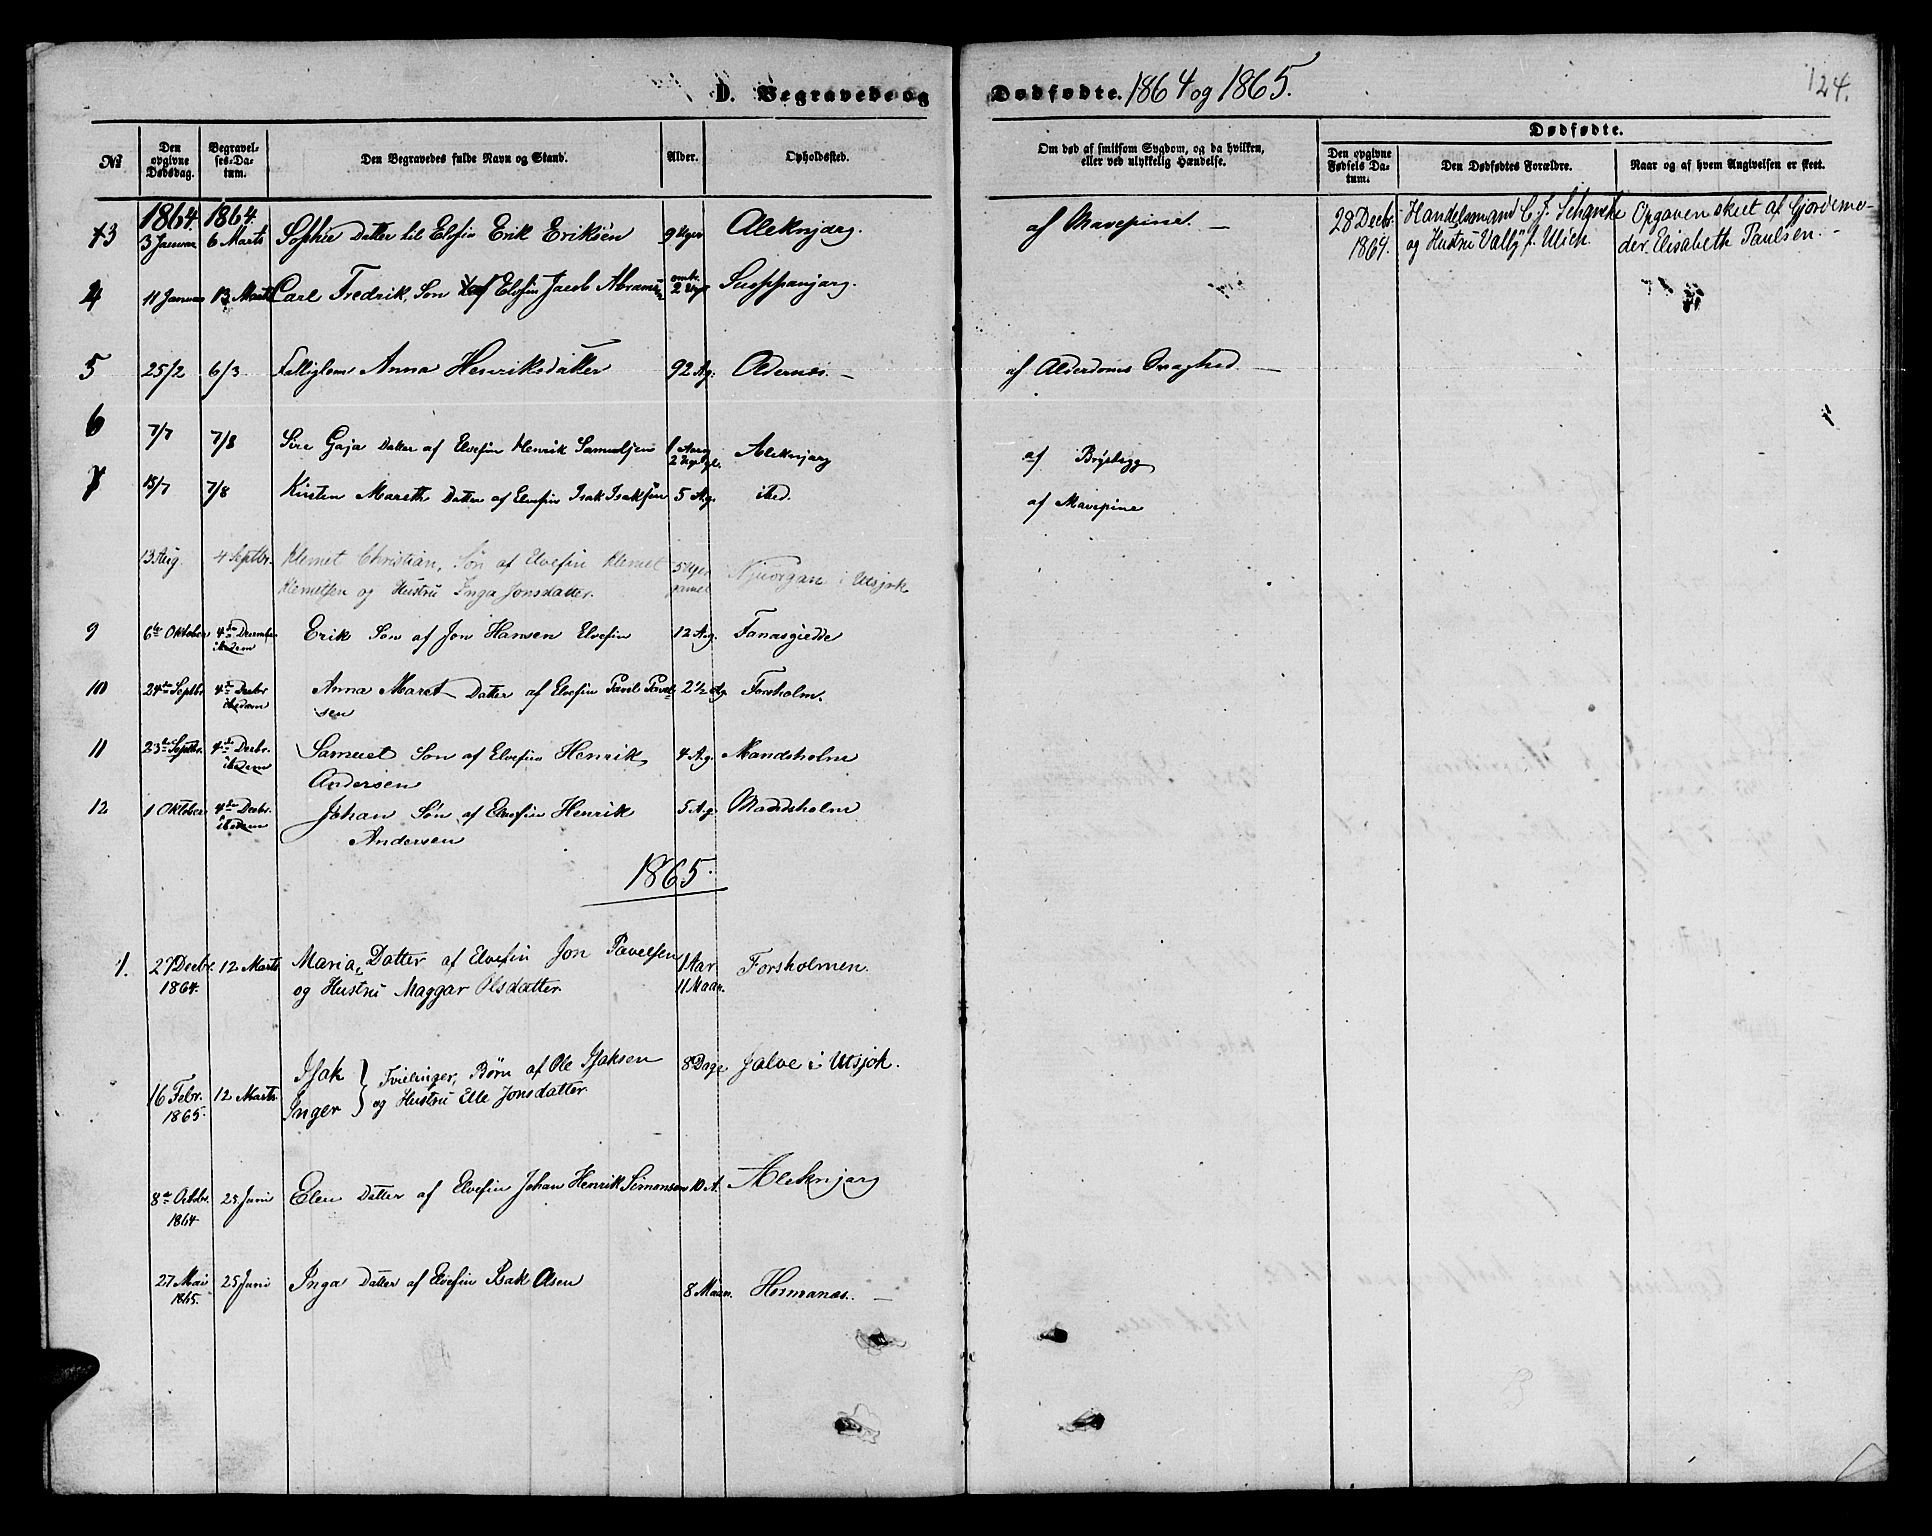 D. Begravede og Dødfødte. 1864 og 1865.
124.
Dødfødte.
№
Den opgivne Dødsdag.
Begravelses-Datum.
Den Begravedes fulde Navn og Stand.
Alder.
Opholdssted.
Om død af smitsom Sygdom, og da hvilken, eller ved ulykkelig Hændelse.
Den opgivne Fødsels Datum.
Den Dødfødtes Forældre.
Naar og af hvem Angivelsen er skeet.
1864. 1864.
3 3 Januar 6 Marts Sophie Datter til Elvfin Erik Eriksen 9 Uger Aleknjarg. af Mavepine. —
28 Decbr. 1864. Handelsmand C. J. Schanche og Hustru Valb. f. Ulich.
Opgaven skeet af Gjordemoder Elisabeth Paulsen. —
4 11 Januar 13 Marts Carl Fredrik, Søn af Elvfin Jacob Abramsen omtr. 2 Uger Suppanjarg.
5 25/2 6/3 Fattiglem Anna Henriksdatter 92 Ag. Odernæs. — af Alderdoms Svaghed —
6 7/7 7/8 Sire Gaja Datter af Elvefin Henrik Samuelsen 1 Aar Aleknjarg af Brystsyg
7 15/7 7/8 Kirsten Mareth Datter af Elvefin Isak Isaksen 5 Ag. ibed. af Mavepine
13 Aug. 4 Septbr. Klemet Christian, Søn af Elvefin Klemet 5 Uger gamel Njuorgan i Utsjok
Klemetsen og Hustru Inga Jonsdatter.
9 6te Oktober 4de December ibedem Erik Søn af Jon Hansen Elvefin 12 Ag. Fanasgiedde
10 24de Septbr 4de Decbr ibedem Anna Maret Datter af Elvefin Pavel Pavelsen 2½ Ag Forsholm.
11 23de Septbr. 4de Decbr. ibedem Samuel Søn af Elvefin Henrik Andersen 4 Ag. Mandsholm
12 1 Oktober 4de Decbr. ibedem Johan Søn af Elvefin Henrik Andersen 5 Ag. Mandsholm
1865.
1. 27 Decbr. 1864. 12 Marts Maria, Datter af Elvefin Jon Pavelsen 1 Aar 11 Maan. Forsholmen.
og Hustru Maggar Olsdatter.
16 Febr. 1865. 12 Marts Isak } Tvillinger, Børn af Ole Isaksen 8 Dage Jalve i Utsjok.
Inger } og Hustru Elle Jonsdatter
8de Octobr. 1864 25 Juni Elen Datter af Elvefin Johan Henrik Simonsen 10 A. Aleknjarg
27 Mai 1865. 25 Juni Inga Datter af Elvefin Isak Olsen 8 Maan. Hermanæs. —